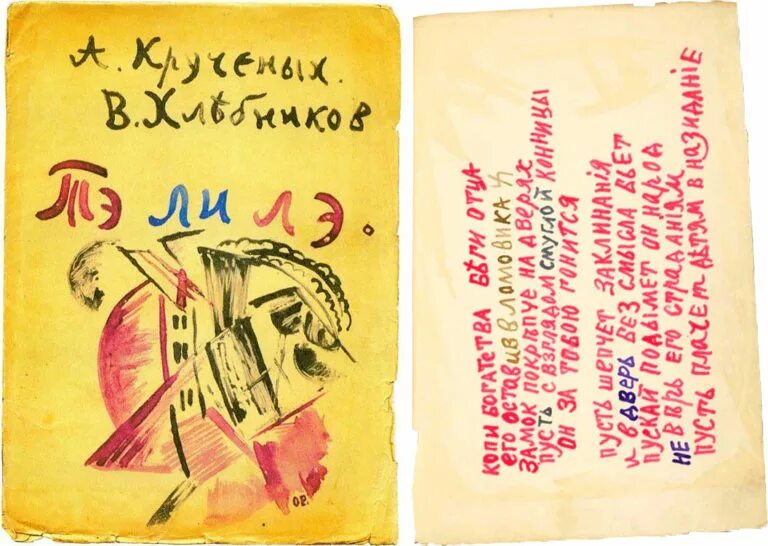 А. Крученых.
В. Хлѣбников
Тэ ли лэ.
ОР.
КОПИ БОГАТСТВА БѢГИ ОТЦА
ЕГО ОСТАВИВ
ЗАМОК ПОКРѢПЧЕ НА ДВЕРЯХ
ПУСТЬ С ВЗГЛЯДОМ СМУГЛОЙ КОННИЦЫ
ОН ЗА ТОБОЮ ГОНИТСЯ
ПУСТЬ ШЕПЧЕТ ЗАКЛИНАНІЯ
И В ДВЕРЬ БЕЗ СМЫСЛА БЬЕТ
ПУСКАЙ ПОДЫМЕТ ОН НАРОД
НЕ ВѢРЬ ЕГО СТРАДАНІЯМ
ПУСТЬ ПЛАЧЕТ ДѢТЯМ В НАЗИДАНІЕ